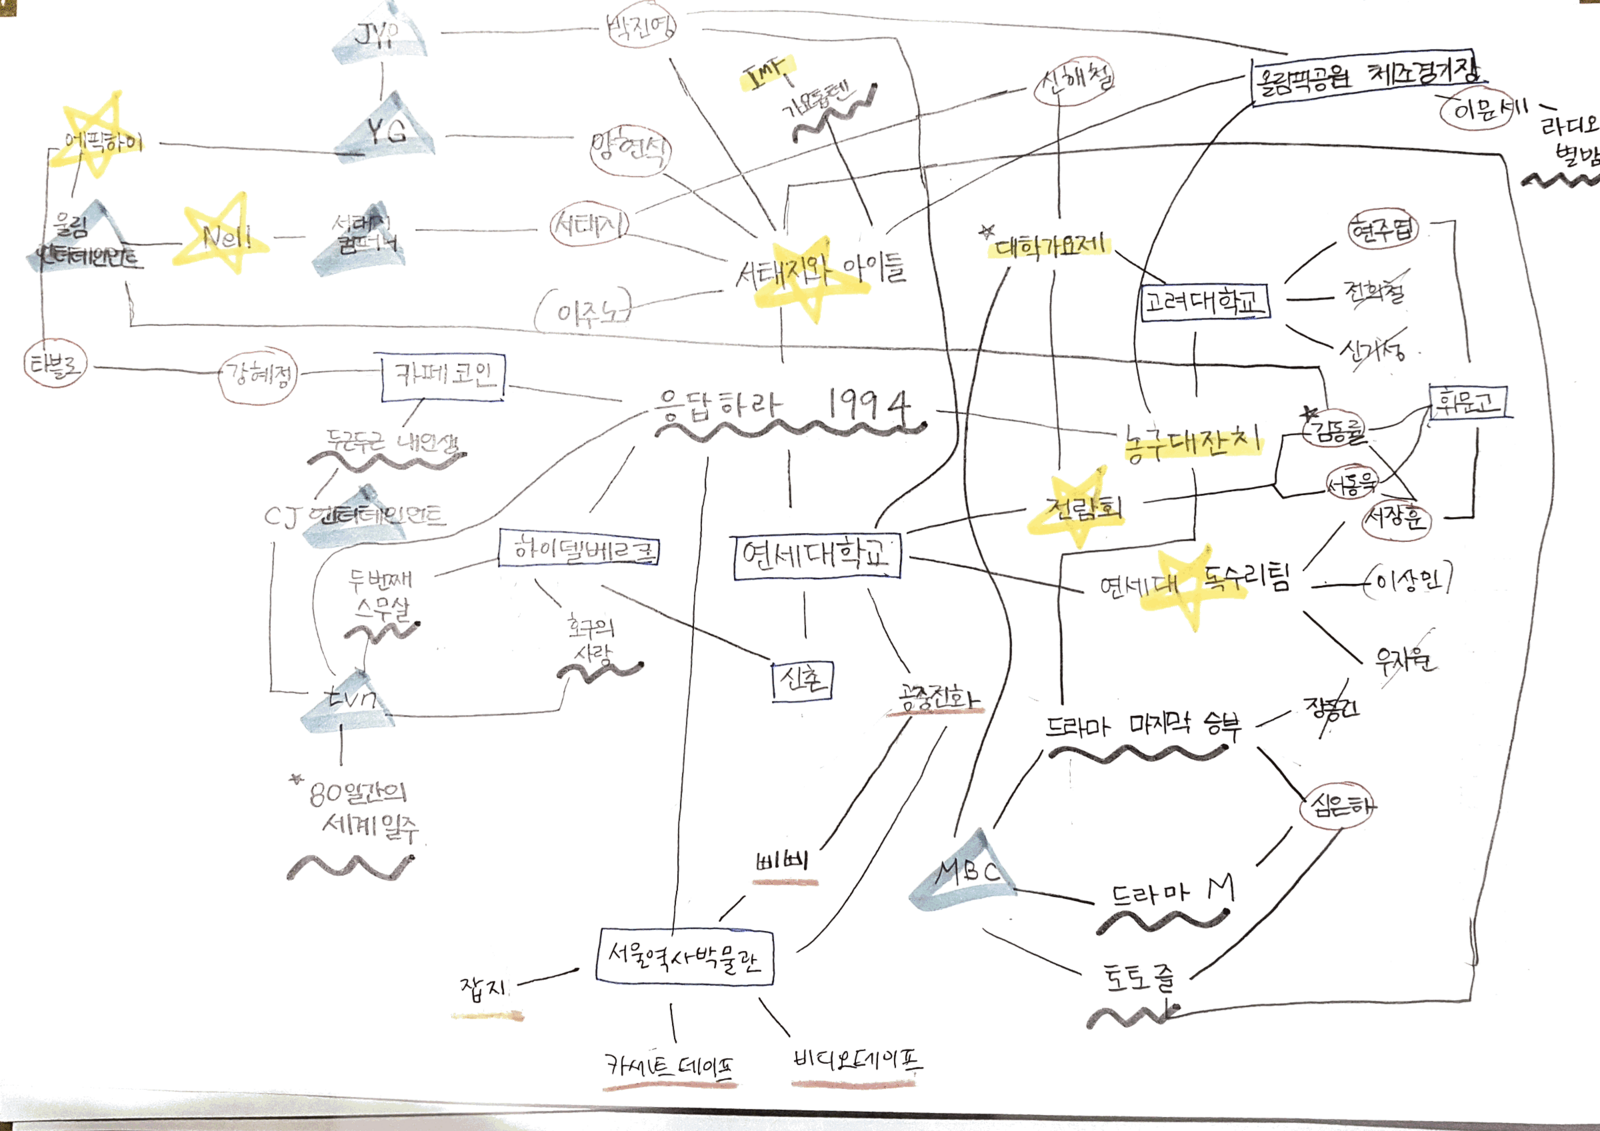 JYP
박진영
IMF
가요톱텐
신해철
올림픽공원 체조경기장
이문세
라디오
별밤
에픽하이
YG
양현석
울림
엔터테인먼트
Nell
서태지
컴퍼니
서태지
대학가요제
현주엽
서태지와 아이들
고려대학교
전희철
이주노
신기성
타블로
강혜정
카페코인
응답하라 1994
휘문고
김동률
두근두근 내인생
농구대잔치
서동욱
CJ 엔터테인먼트
전람회
서장훈
하이델베르크
연세대학교
두번째
스무살
연세대 독수리팀
(이상민)
호구의
사랑
우지원
신촌
tvn
공중전화
드라마 마지막 승부
장동건
80일간의
세계일주
심은해
삐삐
MBC
드라마 M
서울역사박물관
잡지
토토즐
카세트테이프
비디오테이프